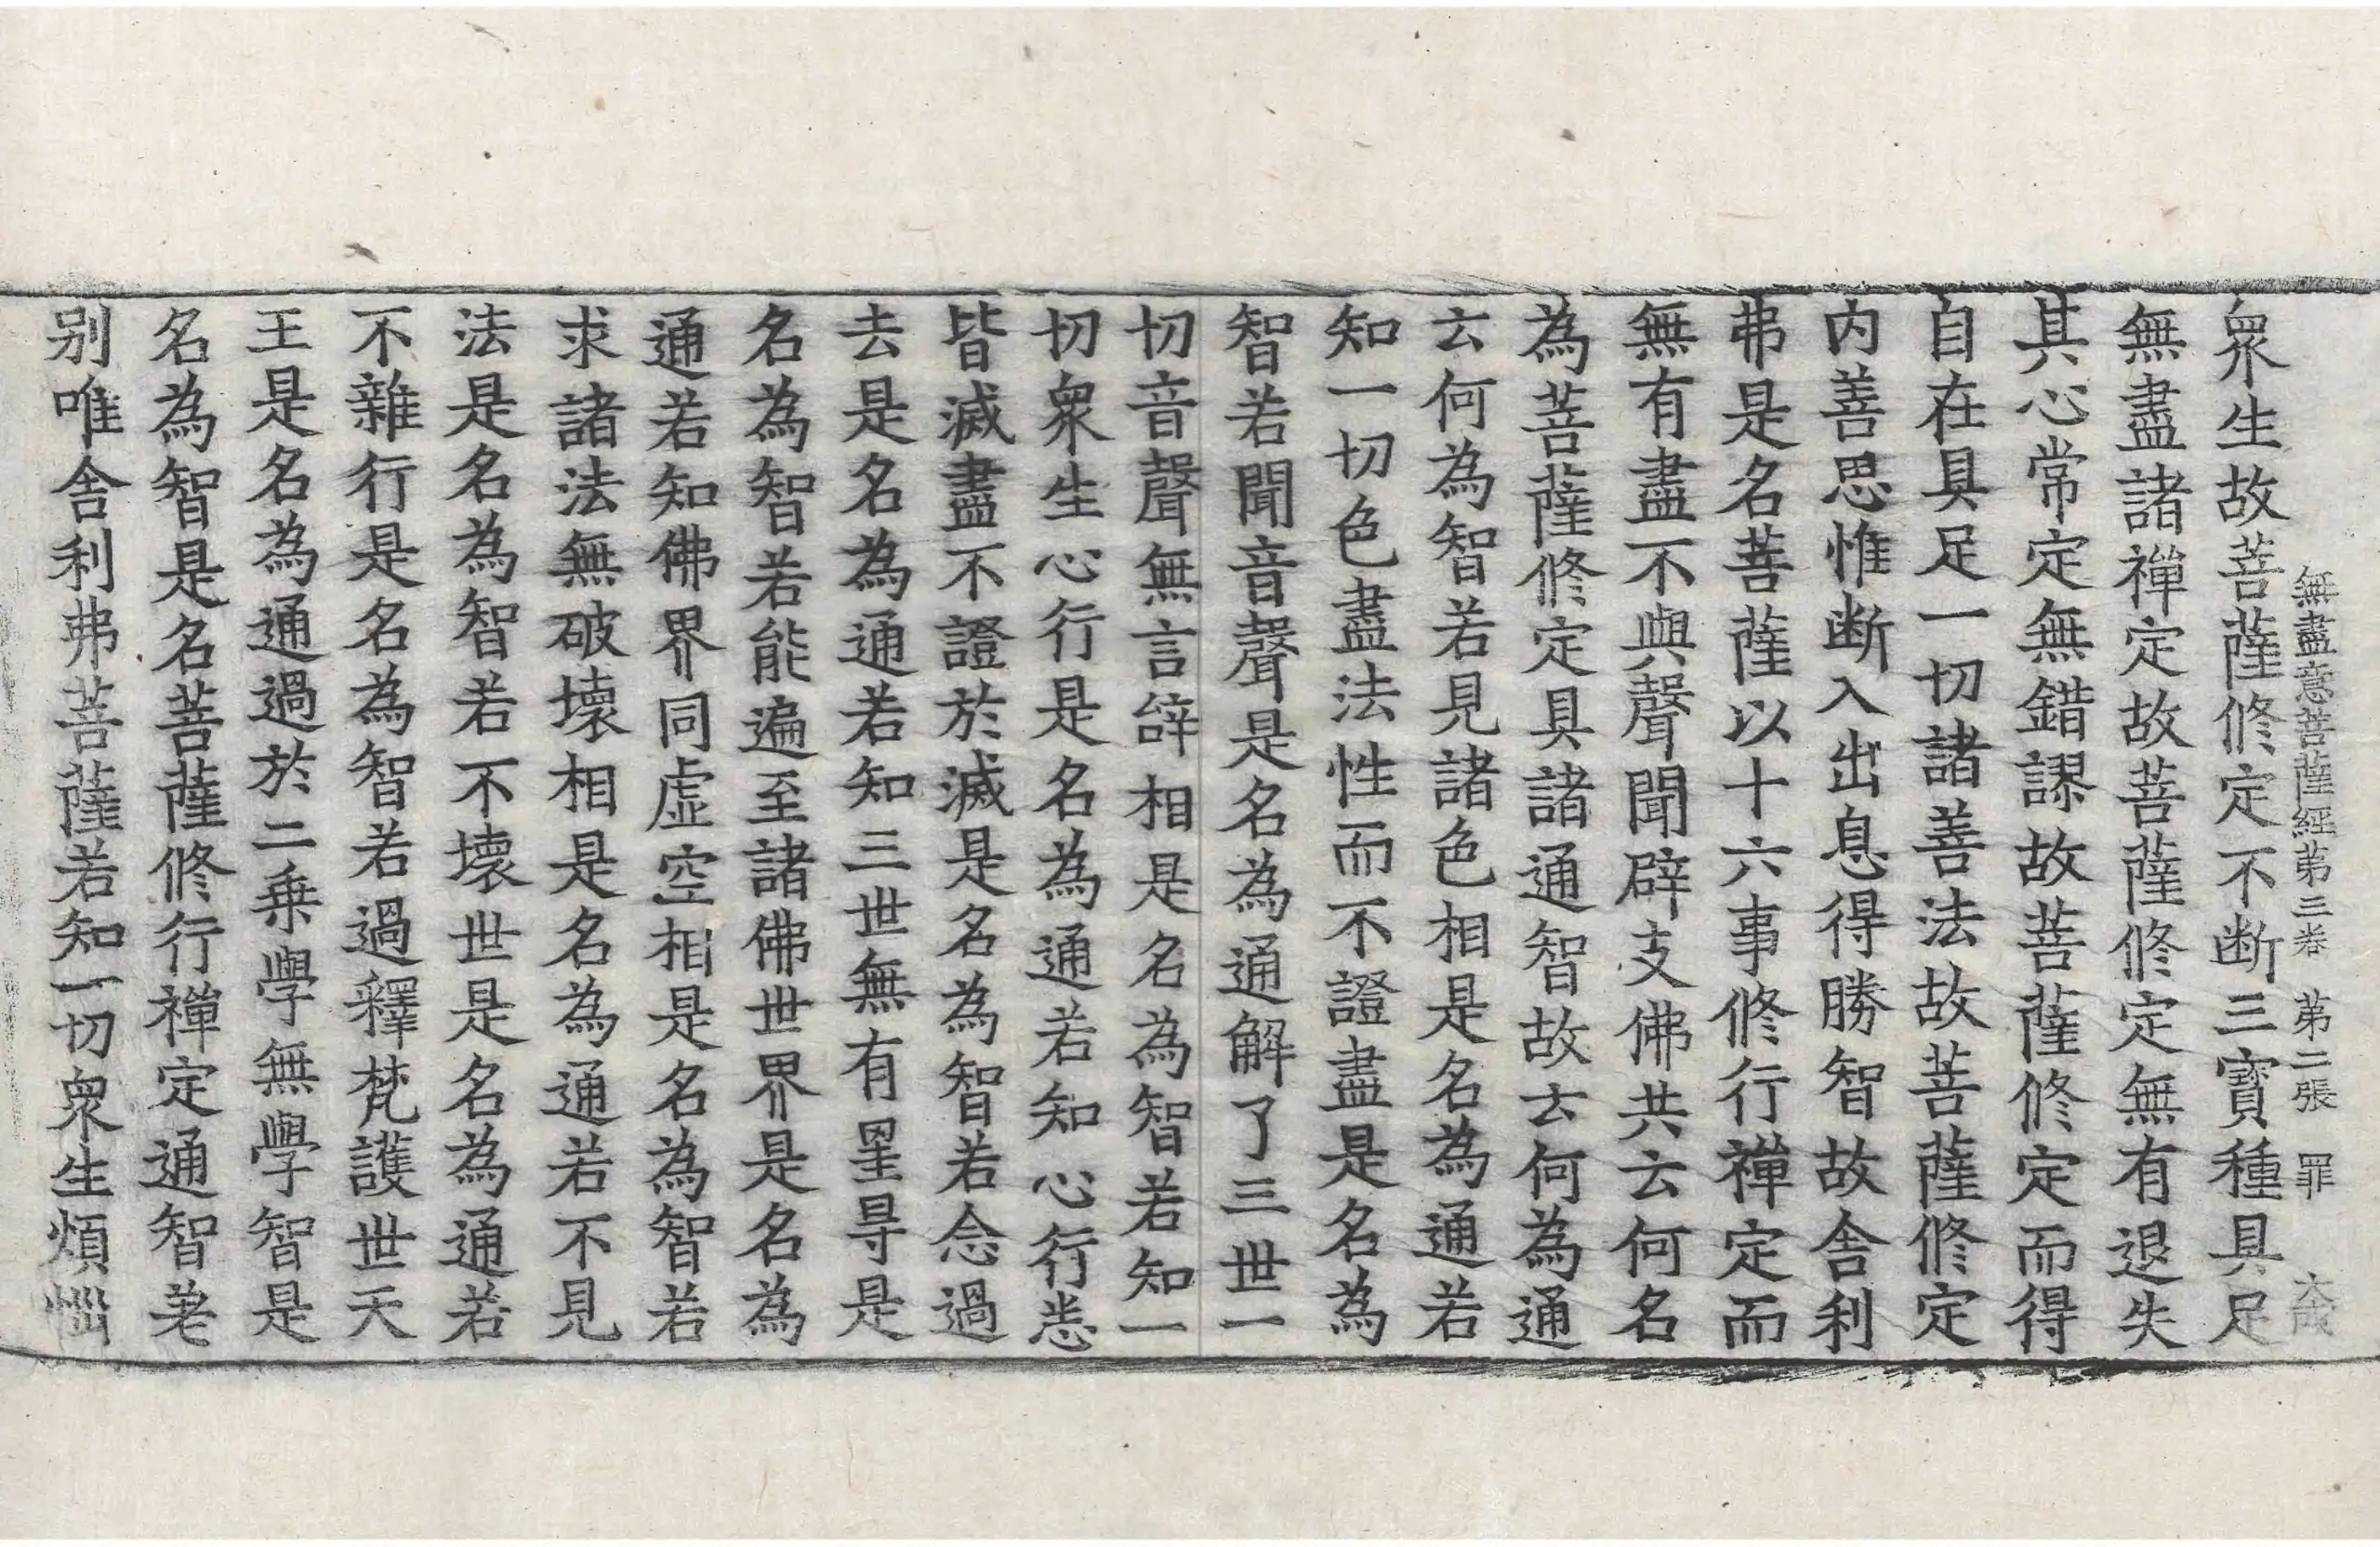 無盡意菩薩經第三卷 第二張 罪
眾生故菩薩修定不断三寶種具足
無盡諸禪定故菩薩修定無有退失
其心常定無錯謬故菩薩修定而得
自在具足一切諸善法故菩薩修定
内善思惟断入出息得勝智故舍利
弗是名菩薩以十六事修行禪定而
無有盡不與聲聞辟支佛共云何名
為菩薩修定具諸通智故云何為通
云何為智若見諸色相是名為通若
知一切色盡法性而不證盡是名為
智若聞音聲是名為通解了三世一
切音聲無言辝相是名為智若知一
切眾生心行是名為通若知心行悉
皆滅盡不證於滅是名為智若念過
去是名為通若知三世無有罣㝵是
名為智若能遍至諸佛世界是名為
通若知佛界同虛空相是名為智若
求諸法無破壞相是名為通若不見
法是名為智若不壞世是名為通若
不雜行是名為智若過釋梵護世天
王是名為通過於二乗學無學智是
名為智是名菩薩修行禪定通智差
别唯舍利弗菩薩若知一切眾生煩惱